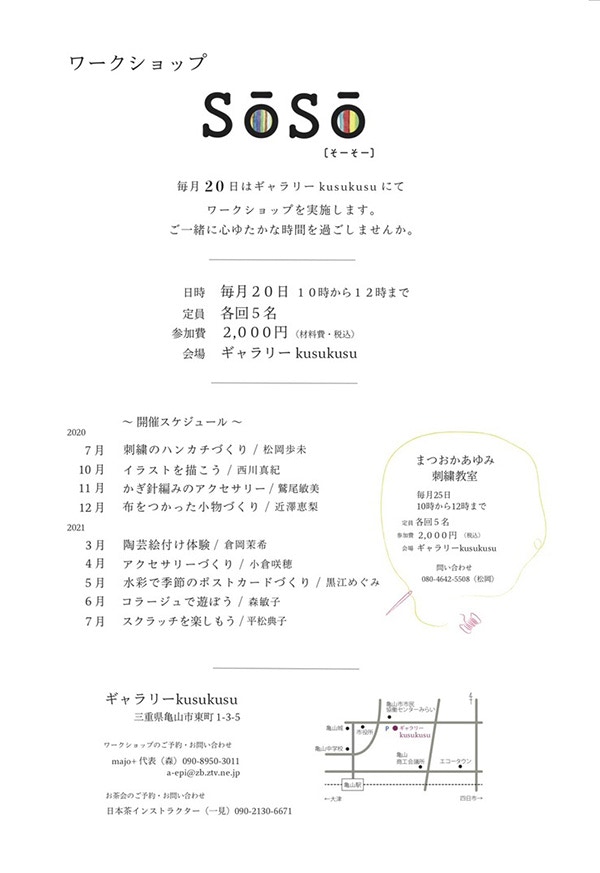 ワークショップ
SōSō
[そーそー]
毎月20日はギャラリーkusukusuにて
ワークショップを実施します。
ご一緒に心ゆたかな時間を過ごしませんか。
日時 毎月20日 10時から12時まで
定員 各回5名
参加費 2,000円 (材料費・税込)
会場 ギャラリー kusukusu
～ 開催スケジュール ～
2020
7月 刺繍のハンカチづくり / 松岡歩未
10月 イラストを描こう / 西川真紀
11月 かぎ針編みのアクセサリー / 鷲尾敏美
12月 布をつかった小物づくり / 近澤恵梨
2021
3月 陶芸絵付け体験 / 倉岡茉希
4月 アクセサリーづくり / 小倉咲穂
5月 水彩で季節のポストカードづくり / 黒江めぐみ
6月 コラージュで遊ぼう / 森敏子
7月 スクラッチを楽しもう / 平松典子
まつおかあゆみ
刺繍教室
毎月25日
10時から12時まで
定員 各回5名
参加費 2,000円 (税込)
会場 ギャラリーkusukusu
問い合わせ
080-4642-5508（松岡）
ギャラリーkusukusu
三重県亀山市東町 1-3-5
ワークショップのご予約・お問い合わせ
majo+ 代表（森）090-8950-3011
a-epi@zb.ztv.ne.jp
お茶会のご予約・お問い合わせ
日本茶インストラクター（一見）090-2130-6671
亀山市市民
協働センターみらい
亀山城
市役所
P
ギャラリー
kusukusu
亀山中学校
亀山
商工会議所
エコータウン
亀山駅
←大津
四日市→